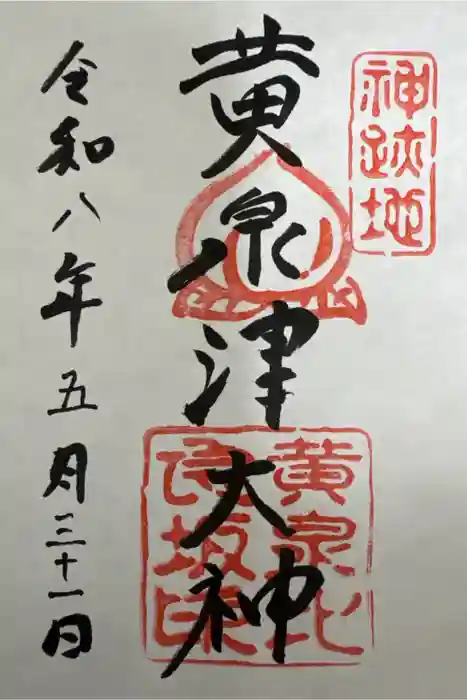 神蹟地
黄泉津大神
黄泉比
良坂印
令和八年五月三十一日